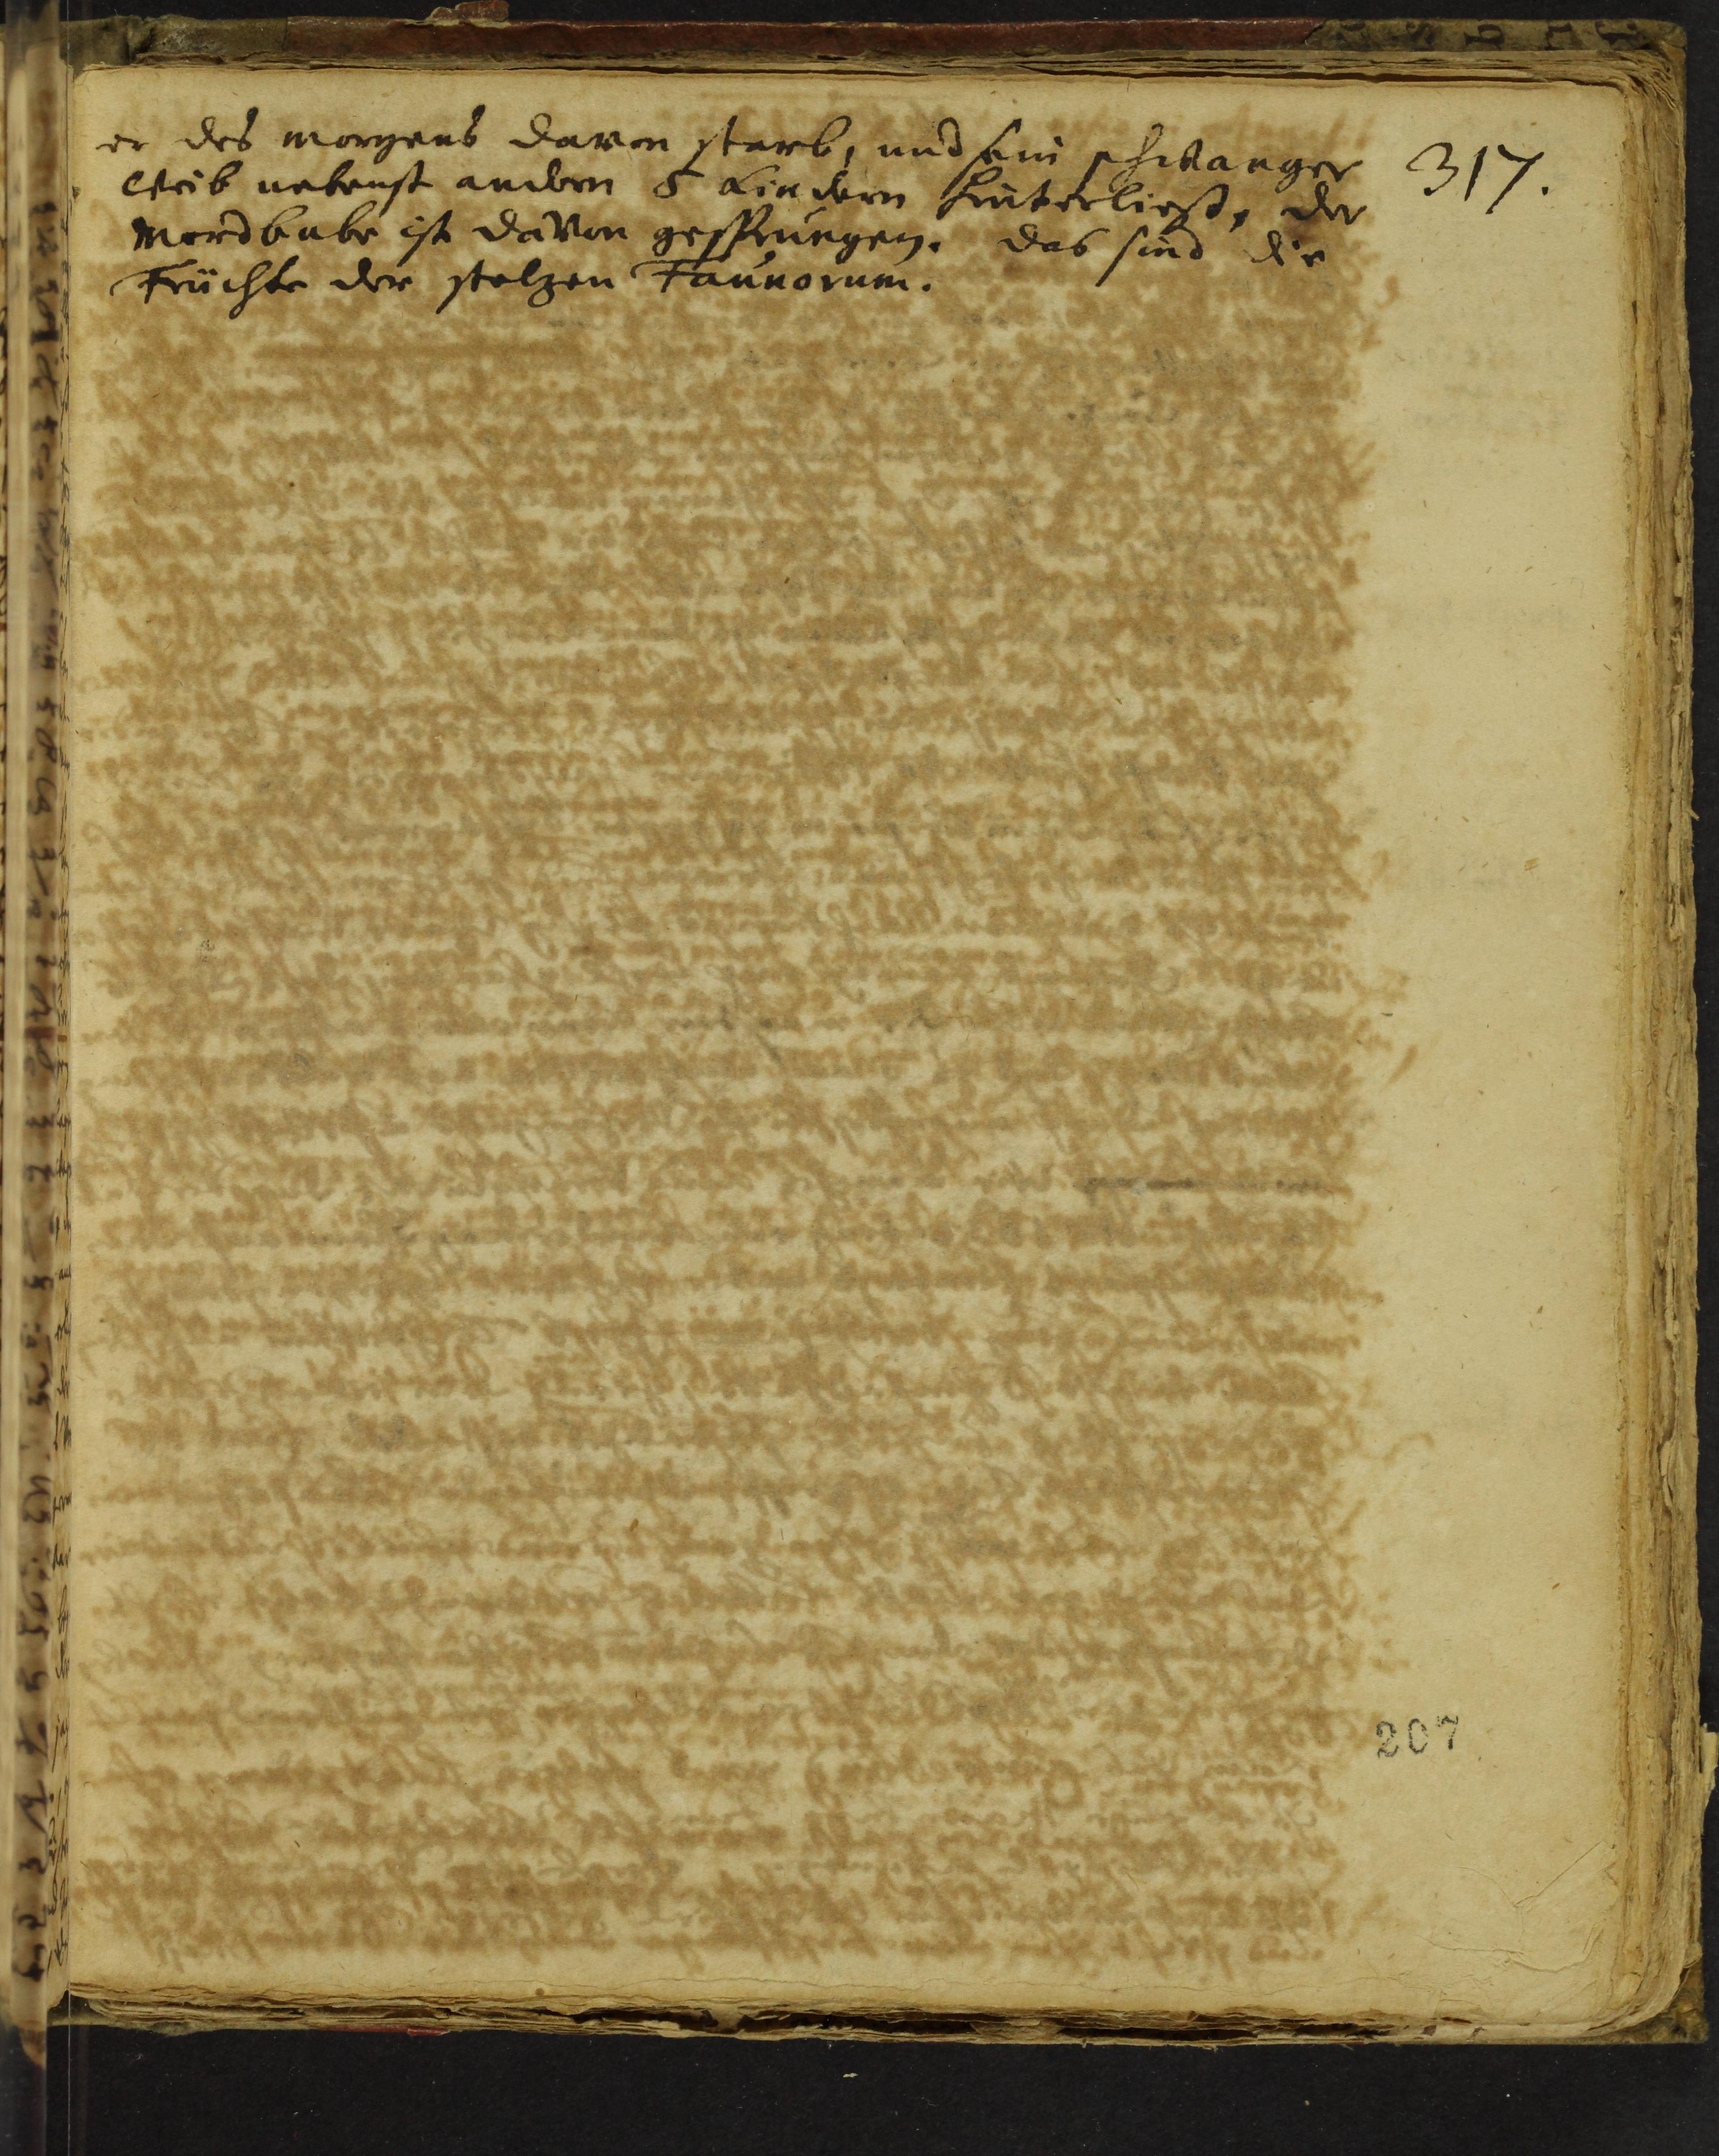 er des morgens davon starb, und sein schwanger
Weib nebenst andern 5 Kindern hinterließ, der
Mordbube ist davon gesprungen. Das sind die
Früchte der stolzen Faunorum.
317.
207